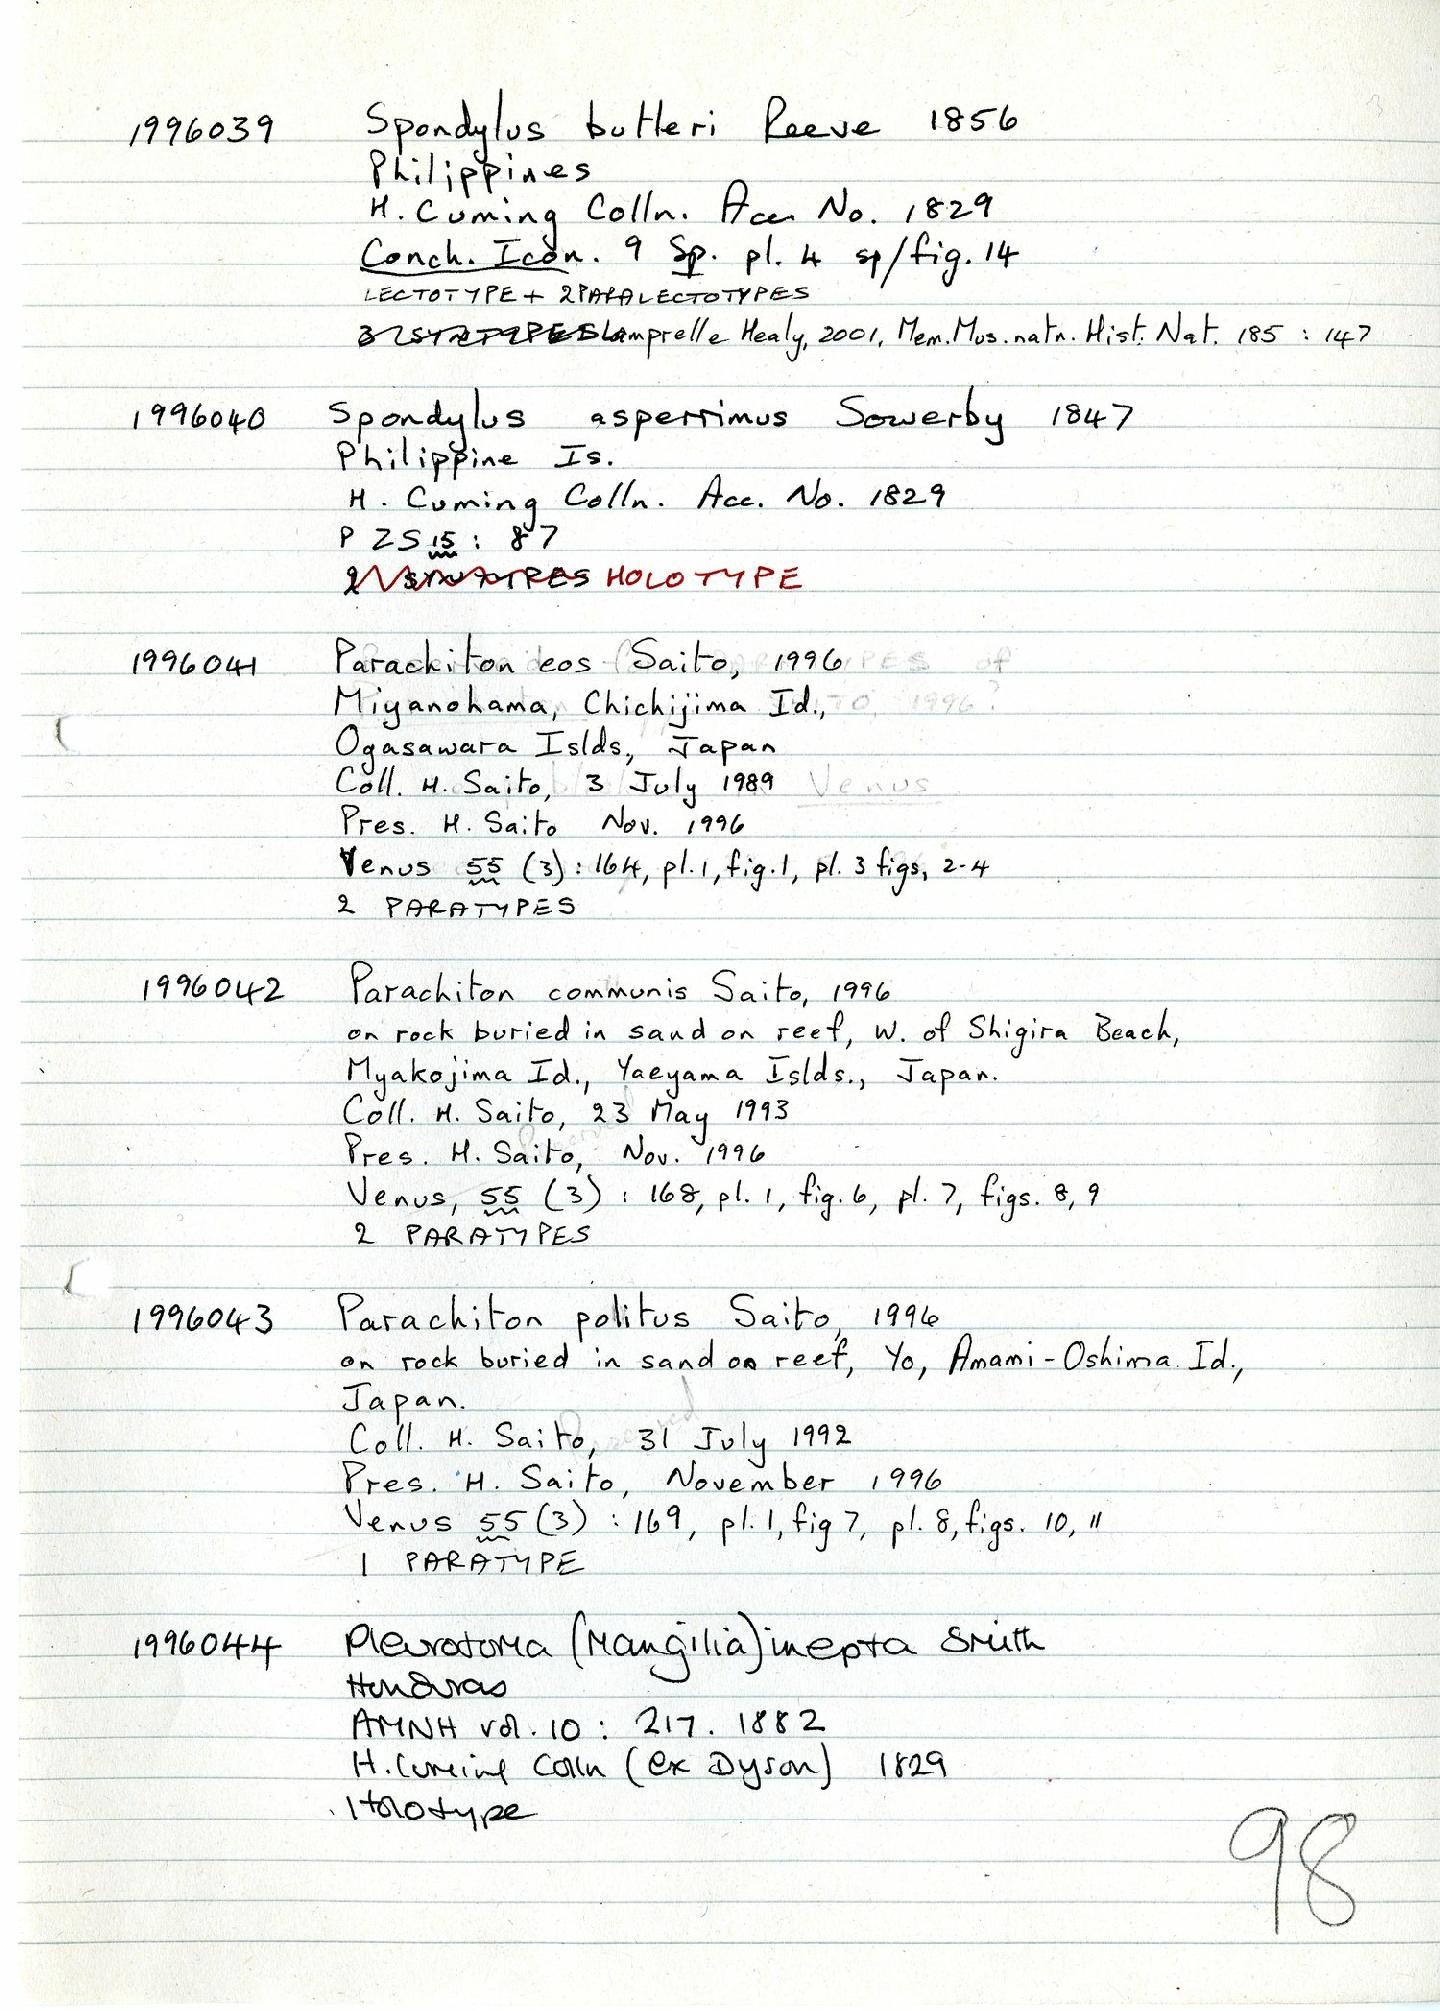 1996039 Spondylus butleri Reeve 1856
Philippines
H. Cuming Colln. Acc. No. 1829
Conch. Icon. 9 Sp. pl. 4 sp/fig. 14
LECTOTYPE + 2 PARALECTOTYPES
3 SYNTYPES Lamprelle Healy, 2001, Mem. Mus. natn. Hist. Nat. 185 : 147
1996040 Spondylus asperrimus Sowerby 1847
Philippine Is.
H. Cuming Colln. Acc. No. 1829
P Z S 15 : 87
2 SYNTYPES HOLOTYPE
1996041 Parachiton eos Saito, 1996
Miyanohama, Chichijima Id.,
Ogasawara Islds., Japan
Coll. H. Saito, 3 July 1989 Venus
Pres. H. Saito Nov. 1996
Venus 55 (3) : 164, pl. 1, fig. 1, pl. 3 figs, 2-4
2 PARATYPES
1996042 Parachiton communis Saito, 1996
on rock buried in sand on reef, W. of Shigira Beach,
Myakojima Id., Yaeyama Islds., Japan.
Coll. H. Saito, 23 May 1993
Pres. H. Saito, Nov. 1996
Venus, 55 (3) : 168, pl. 1, fig. 6, pl. 7, figs. 8, 9
2 PARATYPES
1996043 Parachiton politus Saito, 1996
on rock buried in sand on reef, Yo, Amami-Oshima Id.,
Japan.
Coll. H. Saito, 31 July 1992
Pres. H. Saito, November 1996
Venus 55 (3) : 169, pl. 1, fig 7, pl. 8, figs. 10, 11
1 PARATYPE
1996044 Pleurotoma (Mangilia) inepta Smith
Honduras
AMNH vol. 10 : 217. 1882
H. Cuming Colln (ex Dyson) 1829
Holotype
98